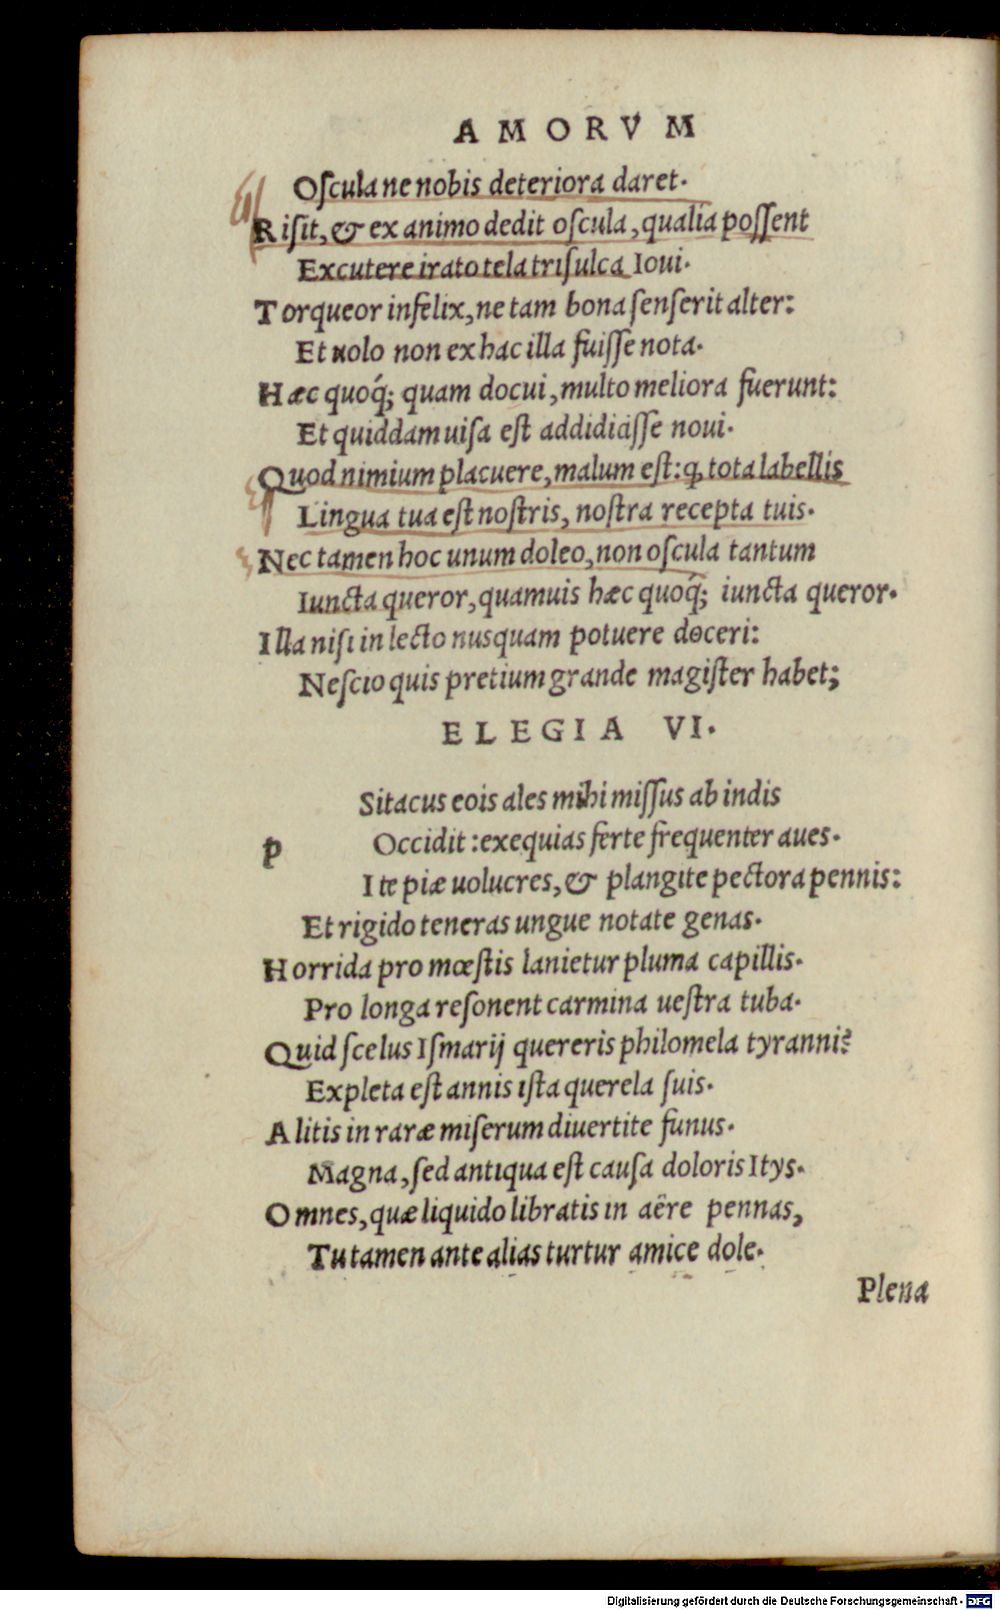 AMORVM
Oſcula ne nobis deteriora daret.
Riſit, & ex animo dedit oſcula, qualia poſſent
Excutere irato tela triſulca Ioui.
Torqueor infelix, ne tam bona ſenſerit alter:
Et uolo non ex hac illa fuiſſe nota.
Hæc quoq́; quam docui, multo meliora fuerunt:
Et quiddam uiſa eſt addidiciſſe noui.
Quod nimium placuere, malum eſt: ꝙ tota labellis
Lingua tua eſt noſtris, noſtra recepta tuis.
Nec tamen hoc unum doleo, non oſcula tantum
Iuncta queror, quamuis hæc quoq́; iuncta queror.
Illa niſi in lecto nusquam potuere doceri:
Neſcio quis pretium grande magiſter habet;
ELEGIA VI.
p
Sitacus eois ales mihi miſſus ab indis
Occidit: exequias ferte frequenter aues.
Ite piæ uolucres, & plangite pectora pennis:
Et rigido teneras ungue notate genas.
Horrida pro mœſtis lanietur pluma capillis.
Pro longa reſonent carmina ueſtra tuba.
Quid ſcelus Iſmarij quereris philomela tyranni?
Expleta eſt annis iſta querela ſuis.
Alitis in raræ miſerum diuertite funus.
Magna, ſed antiqua eſt cauſa doloris Itys.
Omnes, quæ liquido libratis in aëre pennas,
Tu tamen ante alias turtur amice dole.
Plena
Digitalisierung gefördert durch die Deutsche Forschungsgemeinschaft - DFG